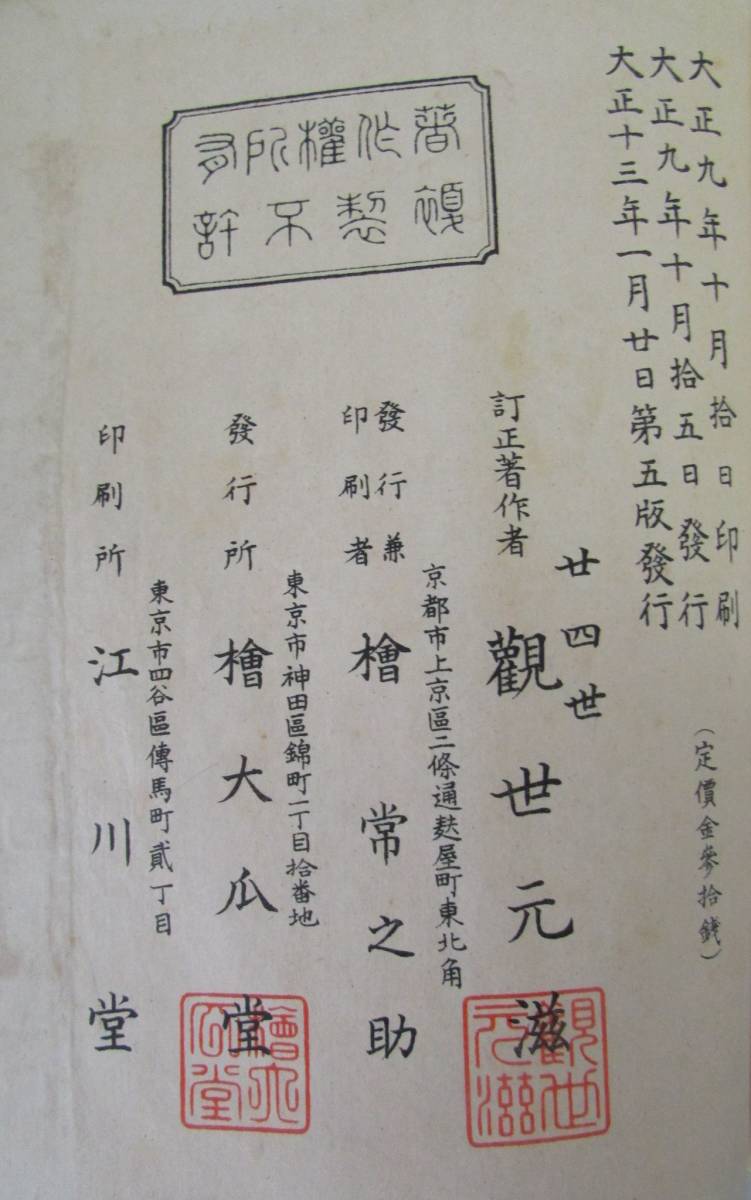 大正九年十月拾日印刷
大正九年十月拾五日發行
大正十三年一月廿日第五版發行
(定價金參拾錢)
著作權所有
複製不許
訂正著作者
廿四世
觀世元滋
觀世元滋
京都市上京區二條通麩屋町東北角
發行兼
印刷者
檜常之助
東京市神田區錦町一丁目拾番地
發行所
檜大瓜堂
檜大瓜堂
東京市四谷區傳馬町貳丁目
印刷所
江川堂